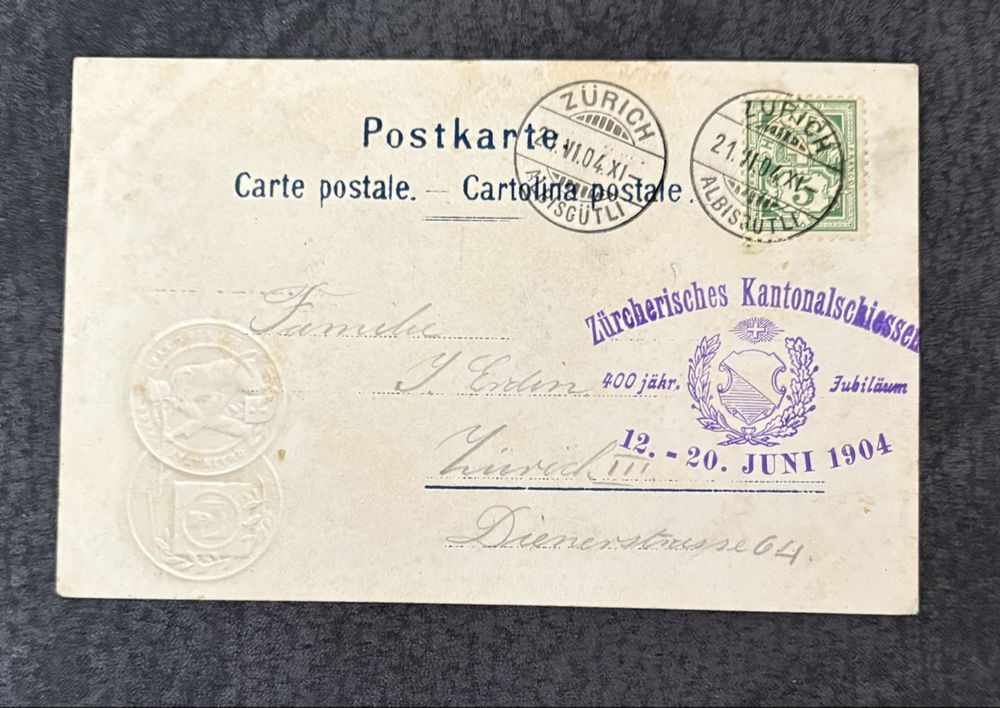 Postkarte.
Carte postale. — Cartolina postale.
ZÜRICH
21.VI.04.XI-
ALBISGÜTLI
ZÜRICH
21.VI.04.XI-
ALBISGÜTLI
5
Zürcherisches Kantonalschiessen
400 jähr. Jubiläum
12. - 20. JUNI 1904
Familie
J Erdin
Zürich III
Dienerstrasse 64.